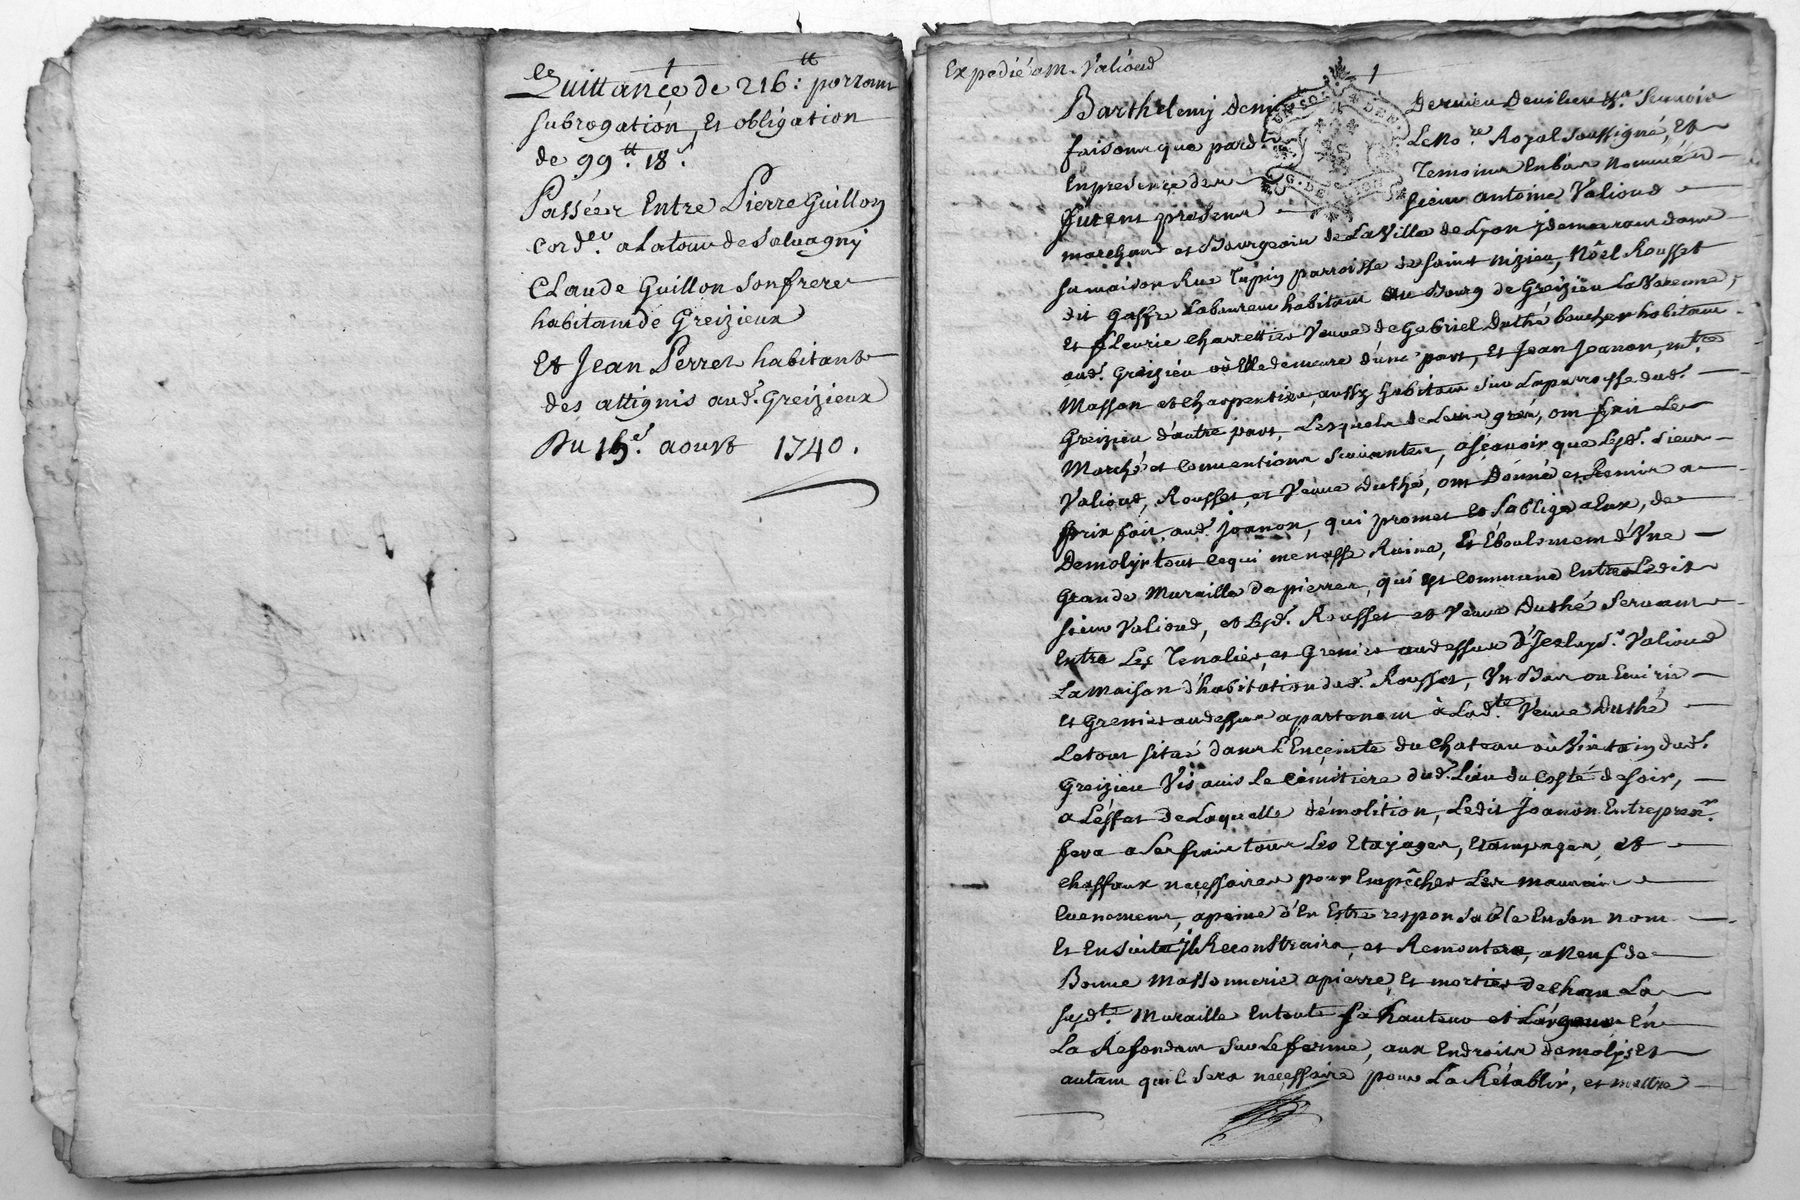 Quittance de 216:tt portant
subrogation, Et obligation
de 99tt 18s
Passéer Entre Pierre Guillon
Cord.er a Latour de Salvagny
Claude Guillon Son frere
habitant de Greizieux
Et Jean Perret habitant
des attignis aud. Greizieux
Du 15e. aoust 1740.
Expedié a M. Valioud
Barthelemy Denis Dernieu Devilieu
faisons que pard. Le No.re Royal Soussigné, Et
En presence des Temoins Enbas Nommés
furent presens sieur antoine Valioud
marchand et Bourgeois de La Ville de Lyon y demeurant dans
sa maison Rue Tupin parroisse de saint nizieu, Nöel Rousset
dit gaffre Laboureur habitant au Bourg de Greizieu La Varenne,
Et fleurie charrettier Veuve de Gabriel Duthé boucher habitant
aud. Greizieu où Elle demeure d'une part, et Jean Joanon, m.tre
Masson et charpentier, aussy habitant sur La parroisse dud.
Greizieu d'autre part, Lesquels de Leurs gréz, ont fait Les
Marché et Conventions Suivantes, asçavoir que Lesd. sieur
Valioud, Rousset, et Veuve Duthé, ont Donné et Remis a
prix fait aud. Joanon, qui promet et s'oblige a Eux, de
Demolyr tout Cequi menasse Ruine, Et Eboulement d'Une
Grande Muraille de pierres, qui Est Commune Entre Ledit
sieur Valioud, et Lesd. Rousset et Veuve Duthé Servant
Entre Les Tenalier, et Grenier au dessus d'Jceluyd. Valioud
La Maison d'habitation dud. Rousset, Un Bas ou Ecuirie
Et Grenier au dessus apartenant à Lad.te Veuve Duthé
Le tout sitüé dans L'Enceinte du Chateau où Vintain dud.
Greizieu Vis avis Le Cimitiere dud. Lieu du Costé de soir,
a L'effet de Laquelle démolition, Ledit Joanon Entrepren.r
fera a Ses frais tous Les Etajages, Etampages, et
chaffaux necessaires pour Empêcher Les mauvais
Evenements, apeine d'En Estre responsable En son nom
Et Ensuite Jl Reconstruira, et Remontera, a Neuf de
Bonne Massonnerie apierre, Et mortier de chaux La
susd.te Muraille En toute sa hauteur et Largeur En
La Refondant Sur Le ferme, aux Endroits demolys Et
autant qu'il Sera necessaire pour La Rétablir, et mettre